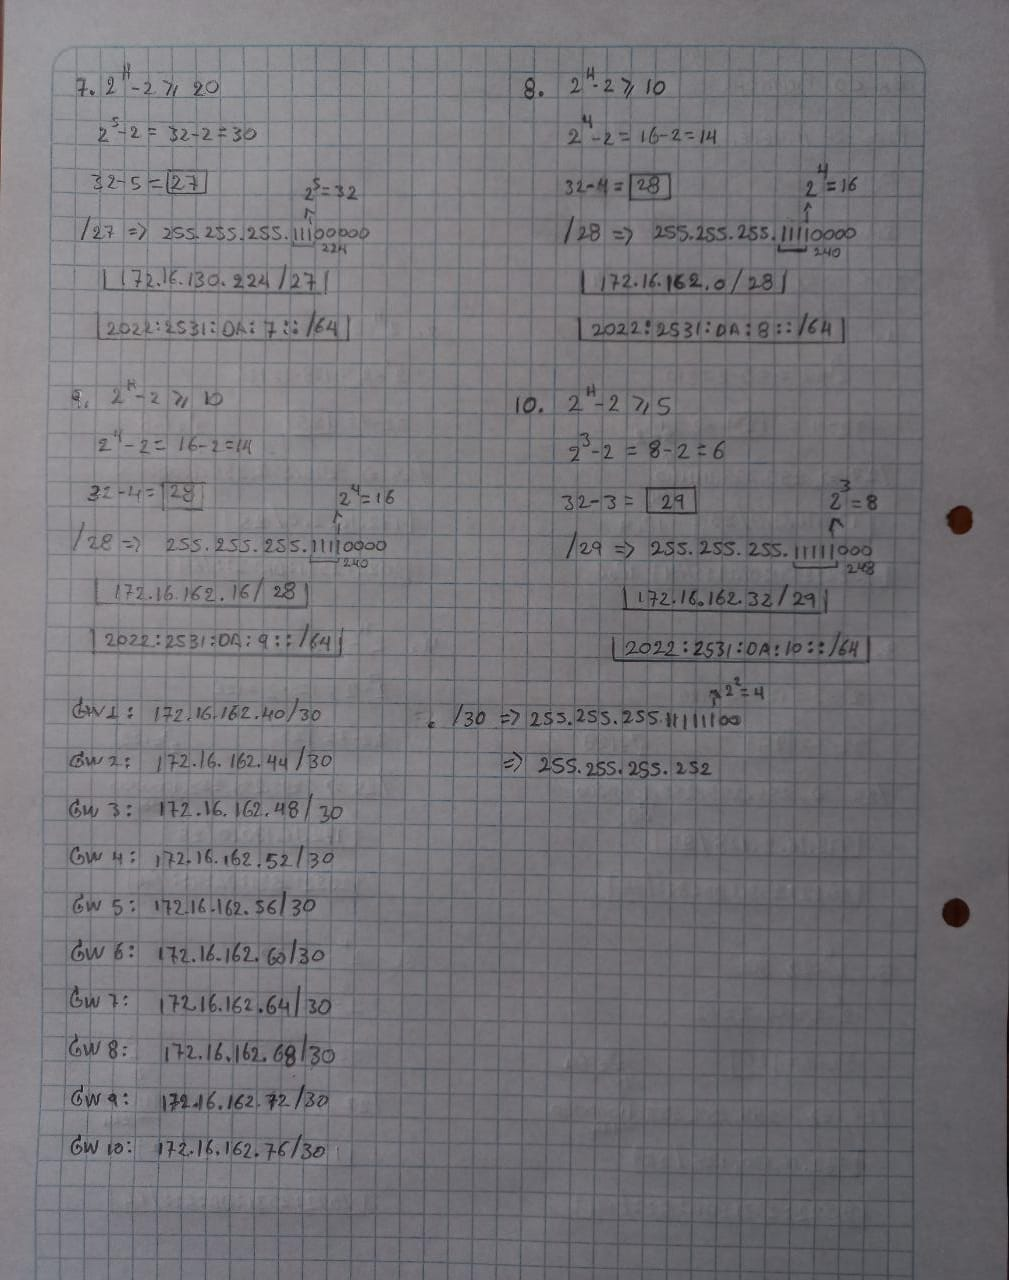 7. 2^H-2 ≥ 20
2^5-2 = 32-2=30
32-5 = 27
2^5=32
/27 => 255.255.255.11100000
224
172.16.130.224/27
2022:2531:DA:7::/64
8. 2^H-2 ≥ 10
2^4-2 = 16-2=14
32-4= 28
2^4=16
/28 => 255.255.255.11110000
240
172.16.162.0/28
2022:2531:DA:8::/64
9. 2^H-2 ≥ 10
2^4-2= 16-2=14
32-4= 28
2^4=16
/28 => 255.255.255.11110000
240
172.16.162.16/28
2022:2531:DA:9::/64
10. 2^H-2 ≥ 5
2^3-2 = 8-2=6
32-3= 29
2^3=8
/29 => 255.255.255.11111000
248
172.16.162.32/29
2022:2531:DA:10::/64
GW1: 172.16.162.40/30
GW 2: 172.16.162.44/30
GW 3: 172.16.162.48/30
GW 4: 172.16.162.52/30
GW 5: 172.16.162.56/30
GW 6: 172.16.162.60/30
GW 7: 172.16.162.64/30
GW 8: 172.16.162.68/30
GW 9: 172.16.162.72/30
GW 10: 172.16.162.76/30
2^2=4
. /30 => 255.255.255.11111100
=> 255.255.255.252